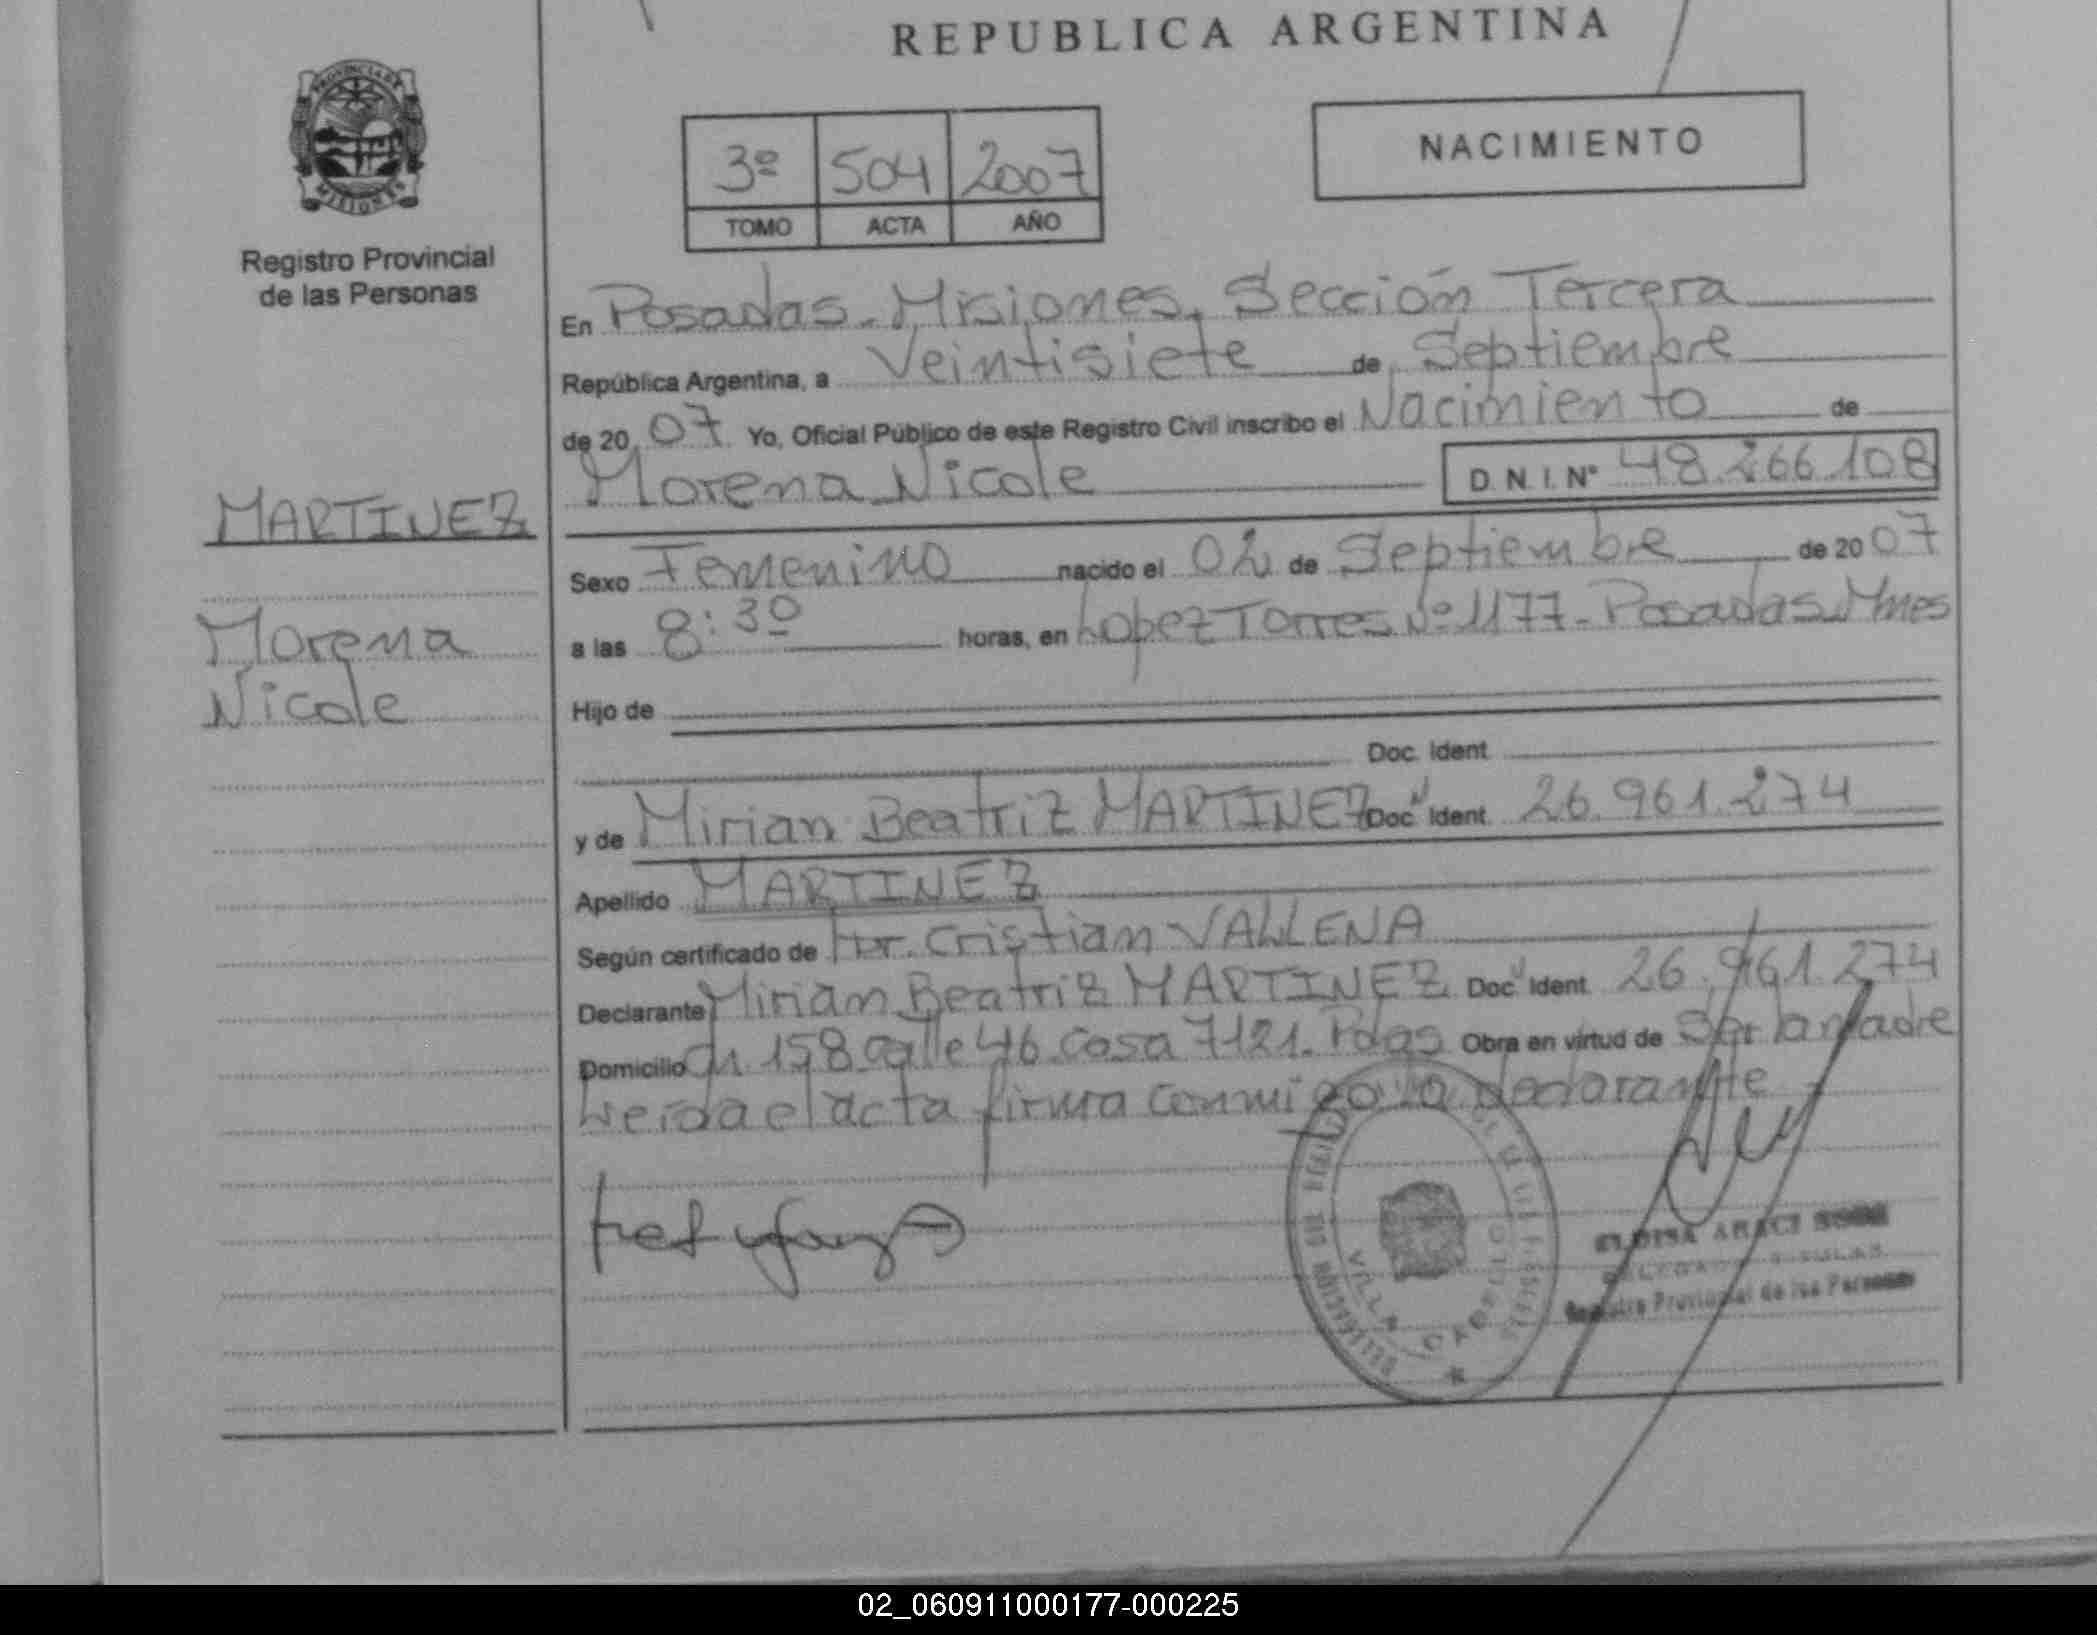 REPUBLICA ARGENTINA
PROVINCIA DE
MISIONES
Registro Provincial
de las Personas
3º 504 2007
TOMO ACTA AÑO
NACIMIENTO
En Posadas - Misiones, Sección Tercera
República Argentina, a Veintisiete de Septiembre
de 20 07 Yo, Oficial Público de este Registro Civil inscribo el Nacimiento de
Morena Nicole D.N.I. Nº 48.266.108
MARTINEZ
Morena
Nicole
Sexo Femenino nacido el 02 de Septiembre de 20 07
a las 8:30 horas, en Lopez Torres Nº 1177 - Posadas Mnes
Hijo de
Doc. Ident.
y de Mirian Beatriz MARTINEZ Doc. Ident. 26.961.274
Apellido MARTINEZ
Según certificado de Dr. Cristian VALLENA
Declarante Mirian Beatriz MARTINEZ Doc. Ident. 26.961.274
Domicilio Ch 158 calle 46 casa 7121. Pdas Obra en virtud de Ser la madre
Leida el acta firma conmigo la declarante
VILLA CABELLO
Registro Provincial de las Personas
02_060911000177-000225